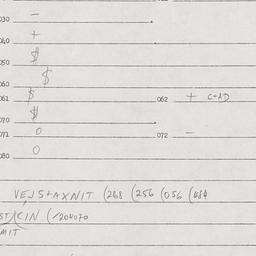 030 –
040 +
050 $
$
060
061 $ 062 + C-AD
070 $
071 0 072 –
080 0
VEJSTAXNIT (268 (256 (056 (684
ST/CIN (/204070
MIT